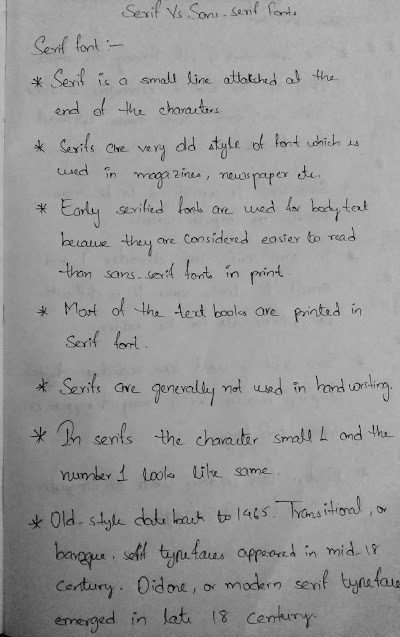 Serif Vs. Sans-serif fonts
Serif font :-
* Serif is a small line attatched at the
end of the characters.
* Serifs are very old style of font which is
used in magazines, newspaper etc.
* Early serified fonts are used for body text
because they are considered easier to read
than sans-serif fonts in print.
* Most of the text books are printed in
Serif font.
* Serifs are generally not used in hand writing.
* In serifs the character small L and the
number 1 looks like same.
* Old-style date back to 1465. Transitional, or
baroque, serif typefaces appeared in mid-18
century. Didone, or modern serif typeface
emerged in late 18 century.